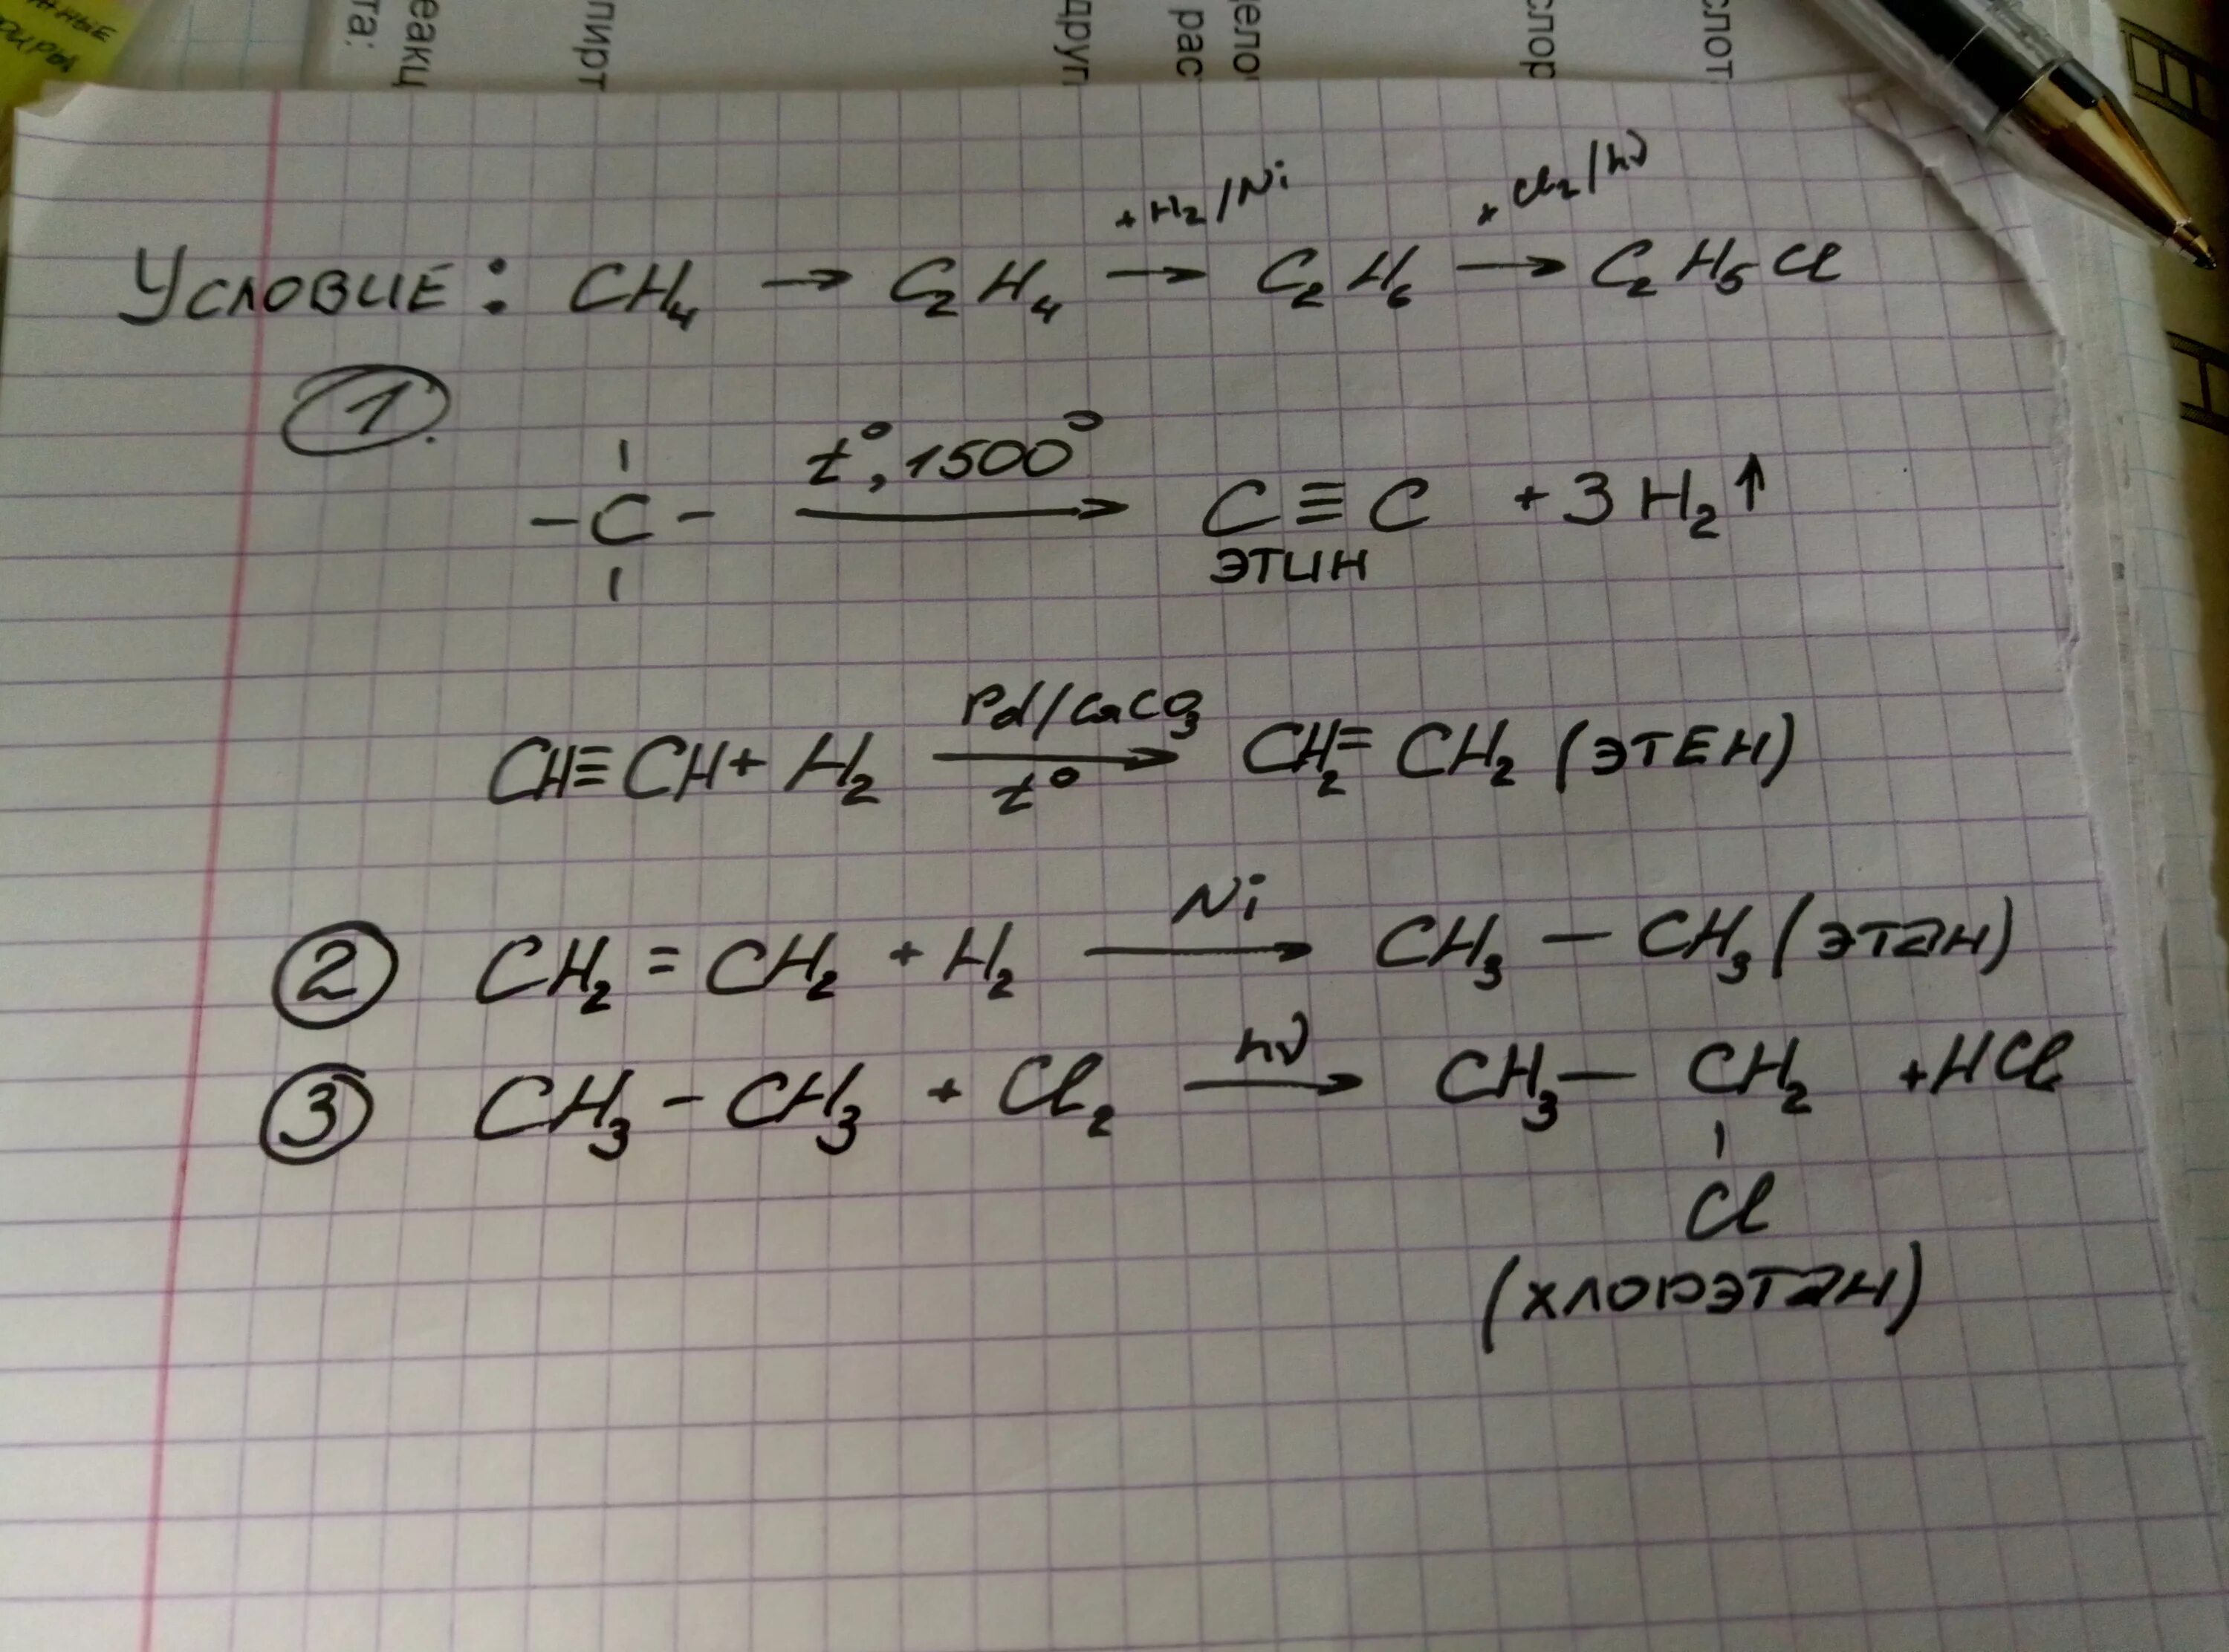 нные
та:
еакц
пирт
друг
рас
дело
спор
спот
+H₂/Ni + Cl₂/hν
Условие: CH₄ → C₂H₄ → C₂H₆ → C₂H₅Cl
1.
-C- t°, 1500° → C≡C + 3H₂↑
этин
CH≡CH + H₂ Pd/CaCO₃ → t° CH₂=CH₂ (этен)
2 CH₂=CH₂ + H₂ Ni → CH₃—CH₃ (этан)
3 CH₃-CH₃ + Cl₂ hν → CH₃—CH₂ +HCl
Cl
(хлорэтан)